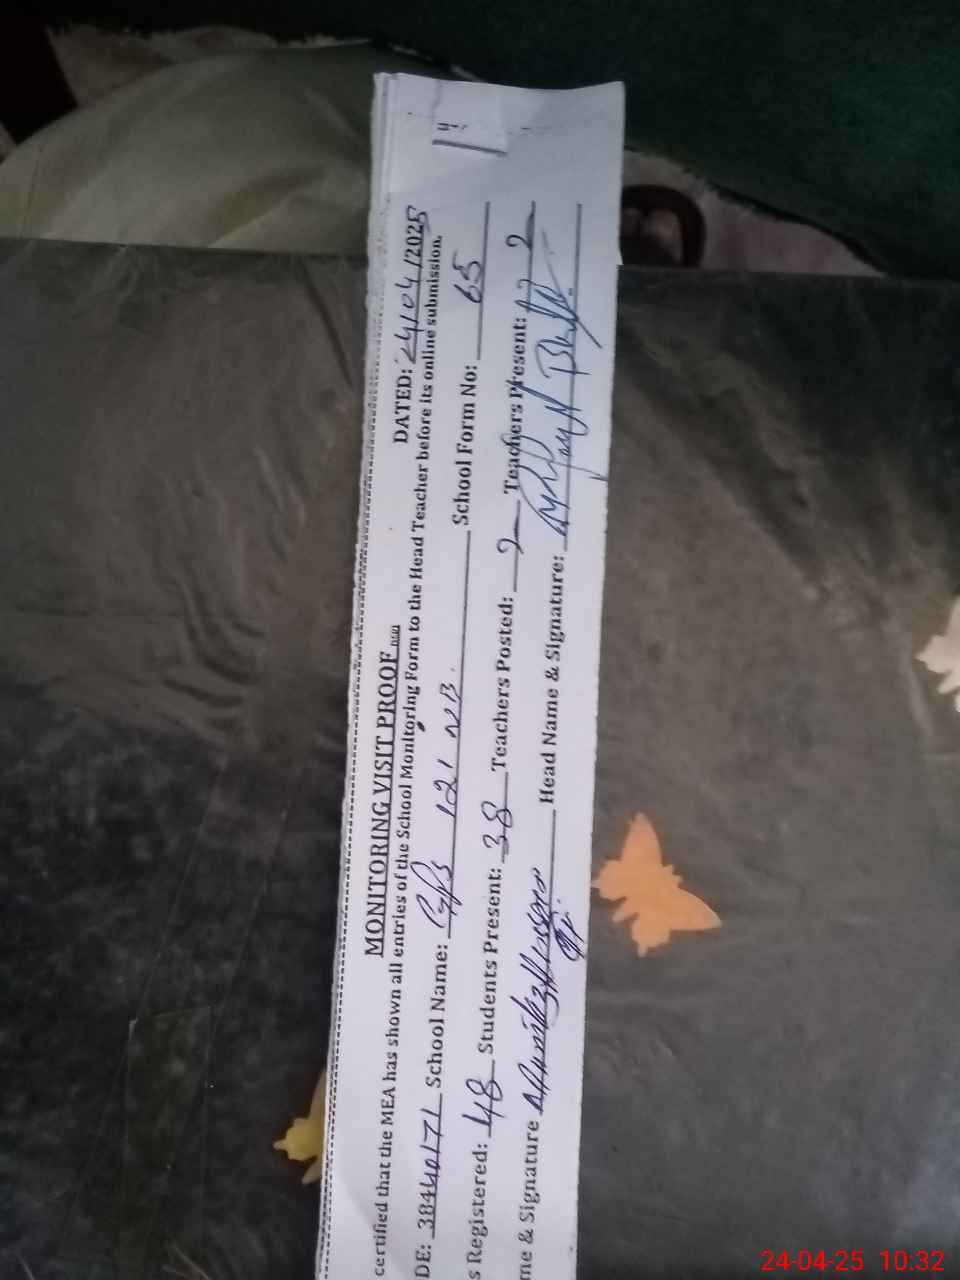 MONITORING VISIT PROOF
DATED: 24/04/2025
certified that the MEA has shown all entries of the School Monitoring Form to the Head Teacher before its online submission.
DE: 38440171 School Name: GPS 121 NB. School Form No: 65
s Registered: 48 Students Present: 38 Teachers Posted: 2 Teachers Present: 2
me & Signature Head Name & Signature:
24-04-25 10:32